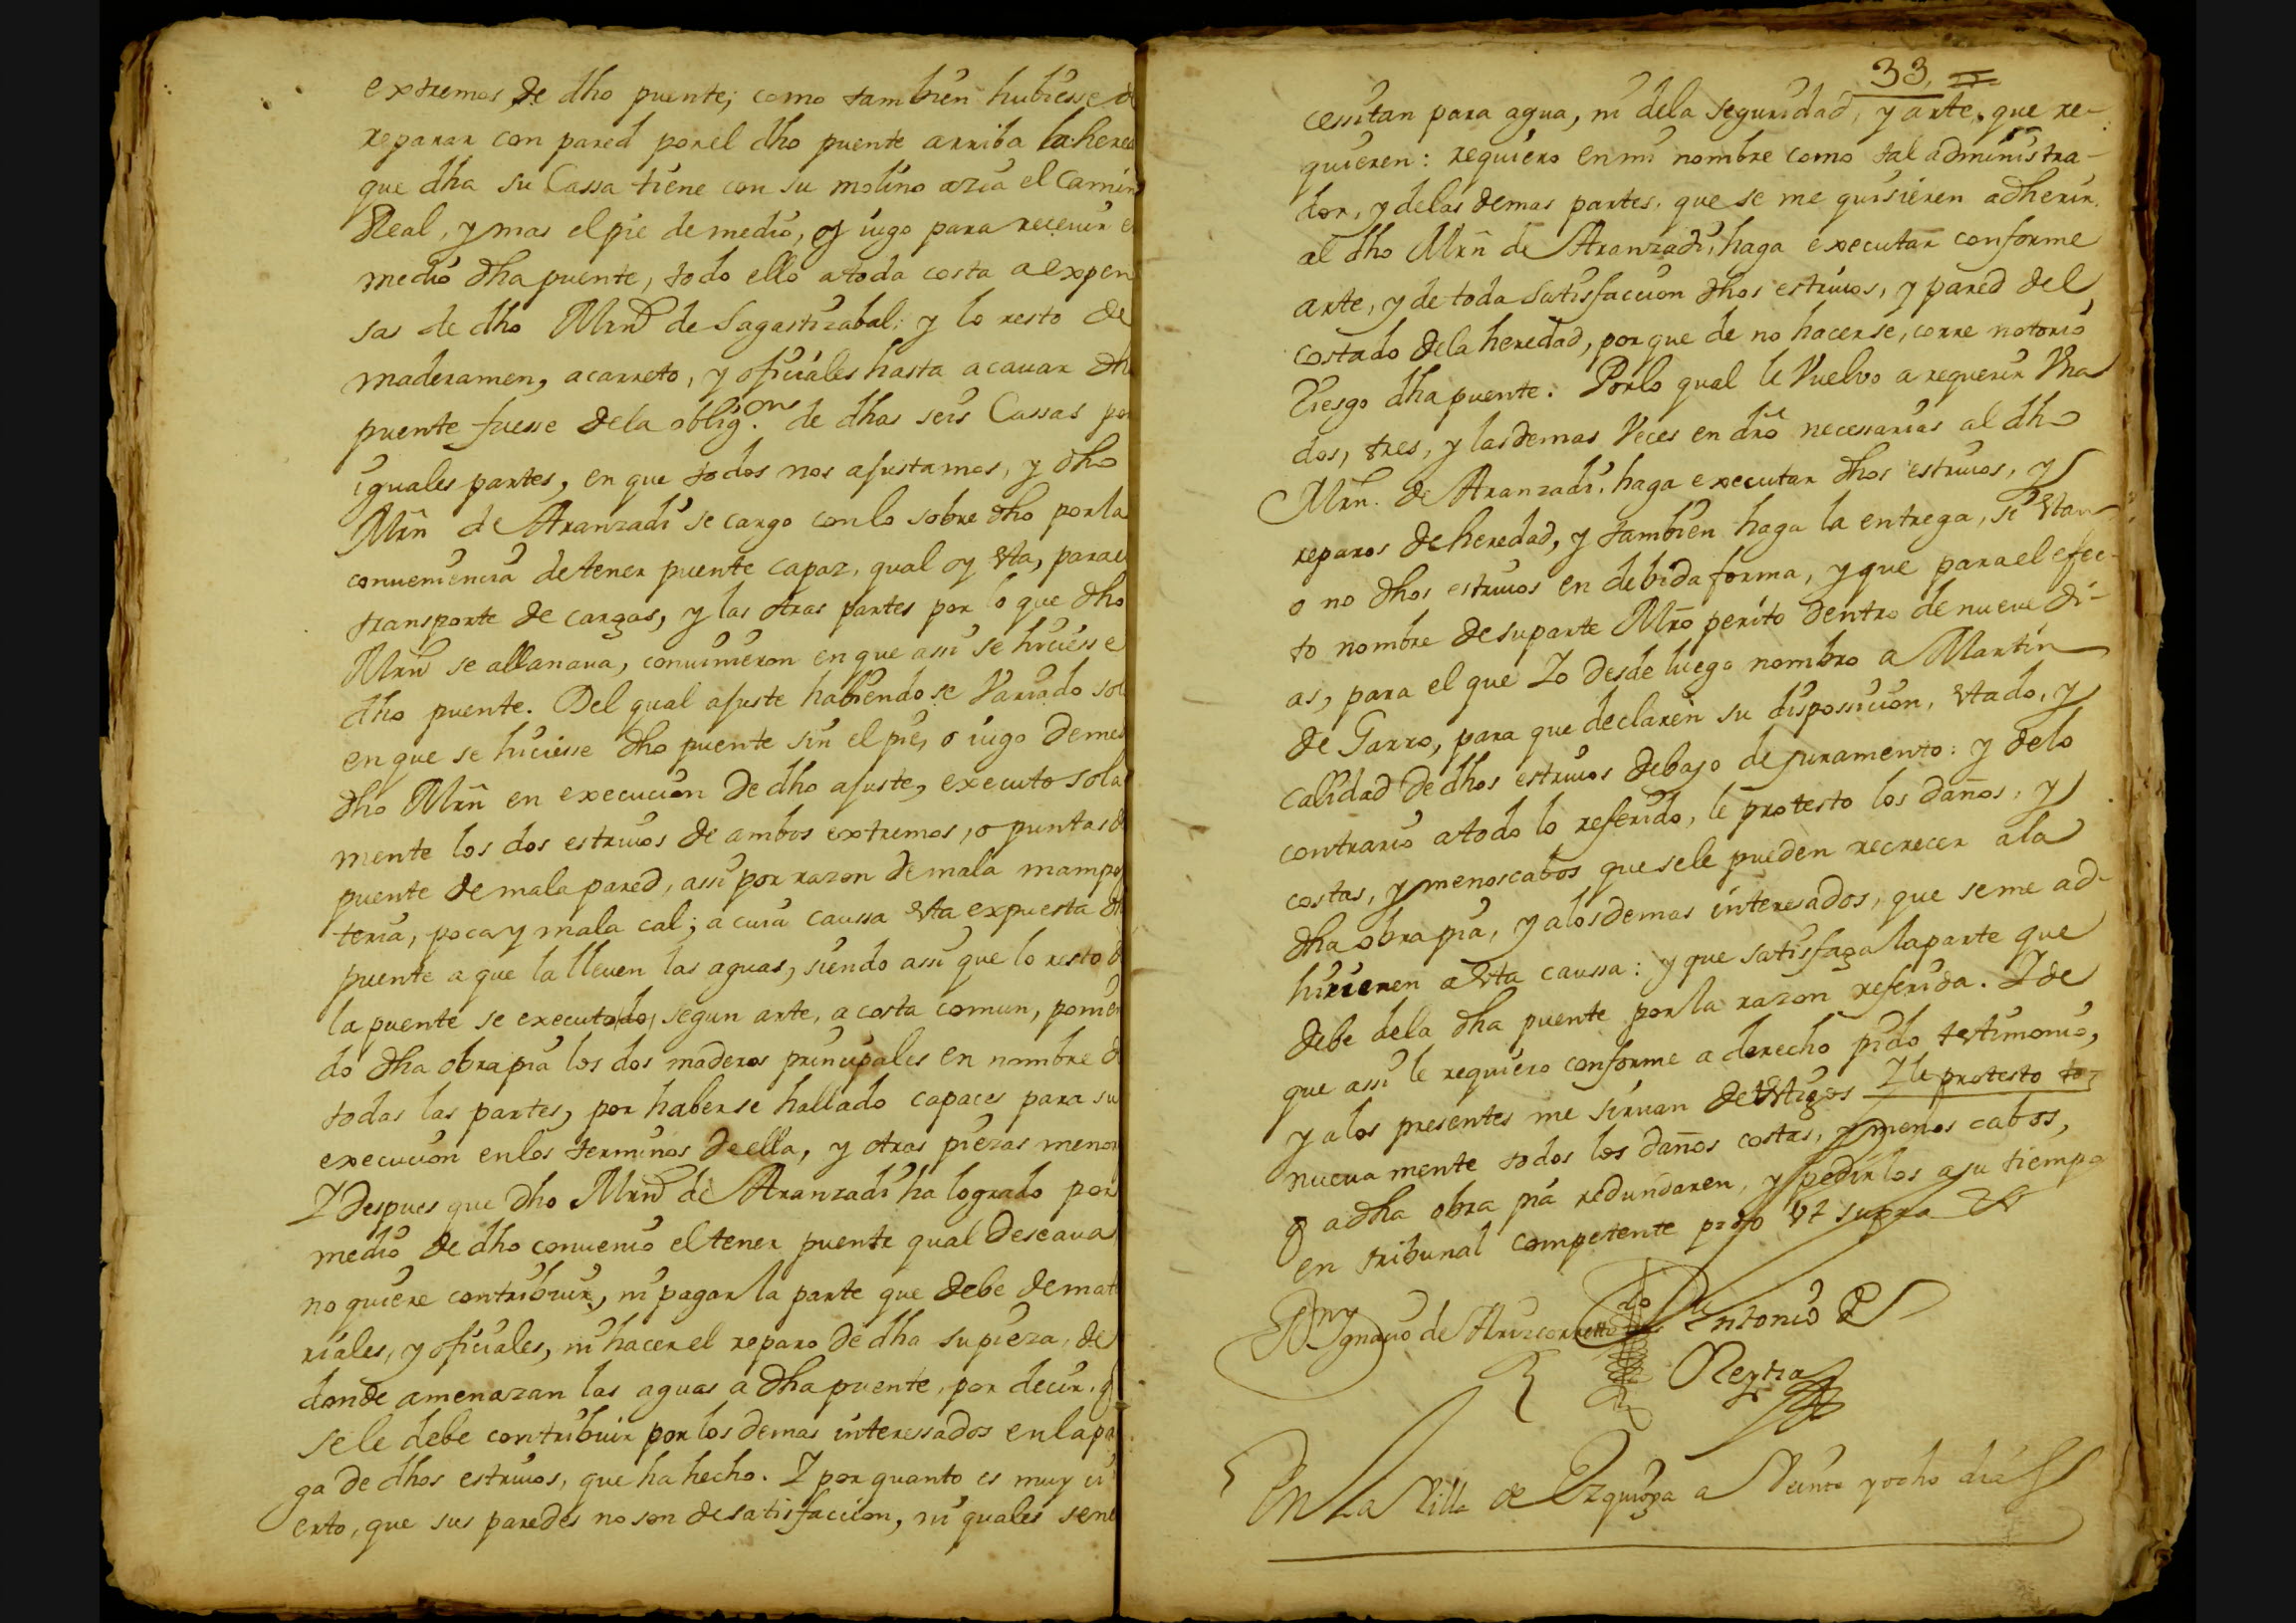 extremos, de dho puente; como tambien hubiesse d
reparar con pared por el dho puente arriba la hered
que dha su Cassa tiene con su molino azia el Camin
Real, y mas el pie de medio, o yugo para receuir e
medio dha puente, todo ello a toda costa a expen
sas de dho Mrn de Sagastizabal; y lo resto de
maderamen, acarreto, y oficiales hasta acauar dh
puente fuesse de la oblig.on de dhas seis Cassas por
iguales partes, en que todos nos ajustamos, y dho
Mrn de Aranzadi se cargo con lo sobre dho por la
conueniencia de tener puente capaz, qual oy esta, para el
transporte de cargas, y las otras partes por lo que dho
Mrn se allanaua, conuinieron en que assi se hiciesse
dho puente. Del qual ajuste habiendose Variado sol
en que se hiciesse dho puente sin el pie, o iugo de med
dho Mrn en execucion de dho ajuste, executo sola
mente los dos estriuos de ambos extremos, o puntas d
puente de mala pared, assi por razon de mala mampos
teria, poca y mala cal; a cuia caussa esta expuesta dh
puente a que la lleuen las aguas, siendo assi que lo resto d
la puente se executado, segun arte, a costa comun, ponien
do dha obra pia los dos maderos principales en nombre d
todas las partes, por haberse hallado capaces para su
execucion en los terminos de ella, y otras piezas menor
I despues que dho Mrn de Aranzadi ha logrado por
medio de dho conuenio el tener puente qual deseaua
no quiere contribuir, ni pagar la parte que debe de mate
riales, y oficiales, ni hacer el reparo de dha su pieza, de
donde amenazan las aguas a dha puente, por decir, q
se le debe contribuir por los demas interessados en la pa
ga de dhos estriuos, que ha hecho. I por quanto es muy ci
erto, que sus paredes no son de satisfacion, ni quales se ne
33.
cessitan para agua, ni de la seguridad, y arte, que re-
quieren: requiero en mi nombre como tal administra-
dor, y de las demas partes, que se me quisieren adherir,
al dho Mrn de Aranzadi, haga executar conforme
arte, y de toda satisfaccion dhos estriuos, y pared del
costado de la heredad, porque de no hacerse, corre notorio
Riesgo dha puente: Por lo qual le Vuelvo a requerir Vna
dos, tres, y las demas Veces en dro necessarias al dho
Mrn. de Aranzadi, haga executar dhos estriuos, y
reparos de heredad, y tambien haga la entrega, si estan
o no dhos estriuos en debida forma, y que para el efec-
to nombre de su parte Mro perito dentro de nueue di-
as, para el que Io desde luego nombro a Martin
de Garro, para que declaren su dispossicion, estado, y
calidad de dhos estriuos debajo de juramento: y de lo
contrario a todo lo referido, le protesto los daños, y
costas, y menoscabos que se le pueden recrecer a la
dha obra pia, y a los demas interesados, que se me ad-
hirieren a esta caussa: y que satisfaga la parte que
debe de la dha puente por la razon referida. I de
que assi le requiero conforme a derecho pido testimonio,
y a los presentes me siruan de testigos I le protesto
nueuamente todos los daños costas, y menos cabos,
q a dha obra pia redundaren, y pedirlos a su tiempo
en tribunal competente pido Vt supra
Ignacio de
Antonio
En La Villa de Ezquioga a Veinte y ocho dias